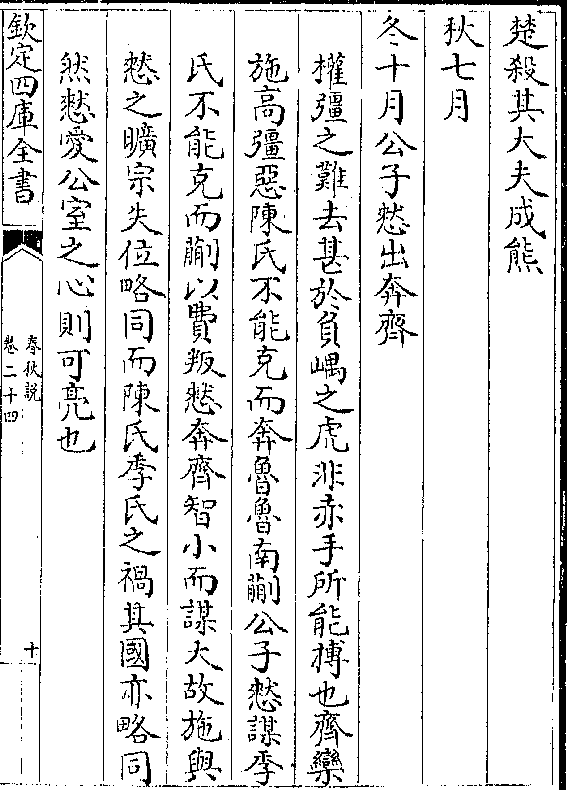 楚殺其大夫成熊
秋七月
冬十月公子憖出奔齊
權彊之難去甚於負嵎之虎非赤手所能搏也齊欒
施高彊惡陳氏不能克而奔魯魯南蒯公子憖謀季
氏不能克而蒯以費叛憖奔齊智小而謀大故施與
憖之曠宗失位略同而陳氏季氏之禍其國亦略同
然憖愛公室之心則可亮也
欽定四庫全書
春秋説
卷二十四
十